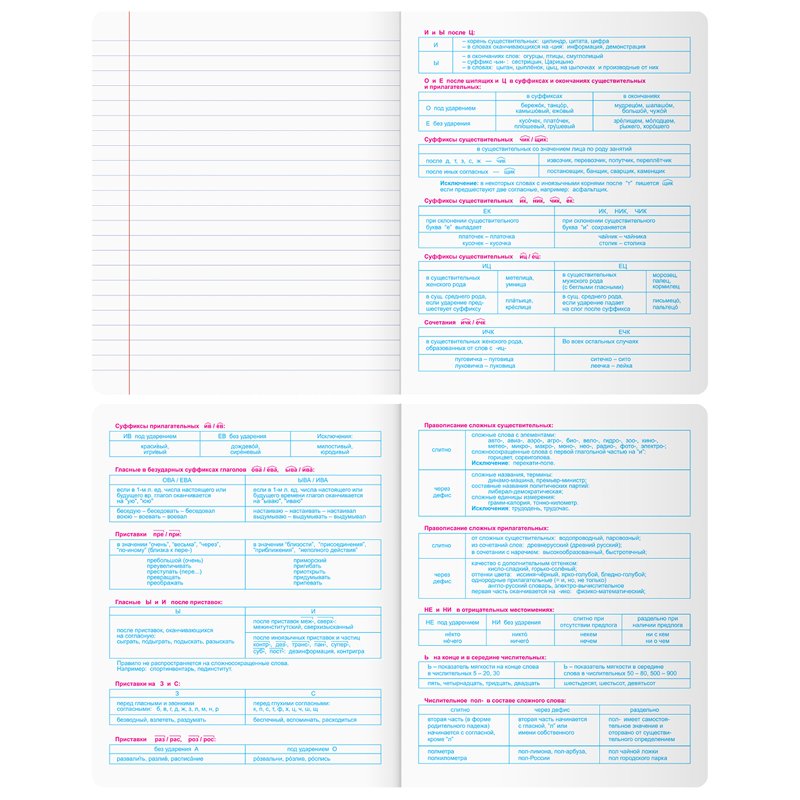 И и Ы после Ц:
И
– корень существительных: цилиндр, цитата, цифра
– в словах оканчивающихся на -ция: информация, демонстрация
Ы
– в окончаниях слов: огурцы, птицы, смуглолицый
– суффикс -ын- : сестрицын, Царицыно
– в словах: цыган, цыплёнок, цыц, на цыпочках и производные от них
О и Е после шипящих и Ц в суффиксах и окончаниях существительных
и прилагательных:
в суффиксах
в окончаниях
О под ударением
бережо́к, танцо́р,
камышо́вый, ежо́вый
мудрецо́м, шалашо́м,
большо́й, чужо́й
Е без ударения
кусо́чек, плато́чек,
плю́шевый, гру́шевый
зре́лищем, мо́лодцем,
ры́жего, хоро́шего
Суффиксы существительных чик / щик:
в существительных со значением лица по роду занятий
после д, т, з, с, ж — чик
извозчик, перевозчик, попутчик, переплётчик
после иных согласных — щик
постановщик, банщик, сварщик, каменщик
Исключение: в некоторых словах с иноязычными корнями после "т" пишется щик
если предшествуют две согласные, например: асфальтщик.
Суффиксы существительных ик, ник, чик, ек:
ЕК
ИК, НИК, ЧИК
при склонении существительного
буква "е" выпадает
при склонении существительного
буква "и" сохраняется
платочек – платочка
кусочек – кусочка
чайник – чайника
столик – столика
Суффиксы существительных иц / ец:
ИЦ
ЕЦ
в существительных
женского рода
метелица,
умница
в существительных
мужского рода
(с беглыми гласными)
морозец,
палец,
кормилец
в сущ. среднего рода,
если ударение пред-
шествует суффиксу
пла́тьице,
кре́слице
в сущ. среднего рода,
если ударение падает
на слог после суффикса
письмецо́,
пальтецо́
Сочетания ичк / ечк
ИЧК
ЕЧК
в существительных женского рода,
образованных от слов с -иц-
Во всех остальных случаях
пуговичка – пуговица
луковичка – луковица
ситечко – сито
леечка – лейка
Суффиксы прилагательных ив / ев:
ИВ под ударением
ЕВ без ударения
Исключения:
краси́вый,
игри́вый
дождево́й,
сире́невый
милостивый,
юродивый
Гласные в безударных суффиксах глаголов ова / ева, ыва / ива:
ОВА / ЕВА
ЫВА / ИВА
если в 1-м л. ед. числа настоящего или
будущего вр. глагол оканчивается
на "ую", "юю"
если в 1-м л. ед. числа настоящего или
будущего времени глагол оканчивается
на "ываю", "иваю"
беседую – беседовать – беседовал
воюю – воевать – воевал
настаиваю – настаивать – настаивал
выдумываю – выдумывать – выдумывал
Приставки пре / при:
в значении "очень", "весьма", "через",
"по-иному" (близка к пере-)
в значении "близости", "присоединения",
"приближения", "неполного действия"
пребольшой (очень)
преувеличивать
преступать (пере...)
превращать
преображать
приморский
пригибать
приоткрыть
придумывать
припевать
Гласные Ы и И после приставок:
Ы
И
после приставок, оканчивающихся
на согласную:
сыграть, подыграть, подыскать, разыскать
после приставок меж-, сверх-
межинститутский, сверхизысканный
после иноязычных приставок и частиц
контр-, дез-, транс-, пан-, супер-,
суб-, пост-: дезинформация, контригра
Правило не распространяется на сложносокращенные слова.
Например: спортинвентарь, пединститут.
Приставки на З и С:
З
С
перед гласными и звонкими
согласными: б, в, г, д, ж, з, л, м, н, р
перед глухими согласными:
к, п, с, т, ф, х, ц, ч, ш, щ
безводный, взлететь, раздумать
беспечный, вспоминать, расходиться
Приставки раз / рас, роз / рос:
без ударения А
под ударением О
развали́ть, разли́в, расписа́ние
ро́звальни, ро́злив, ро́спись
Правописание сложных существительных:
слитно
сложные слова с элементами:
авто-, авиа-, аэро-, агро-, био-, вело-, гидро-, зоо-, кино-,
метео-, микро-, макро-, моно-, нео-, радио-, фото-, электро-;
сложносокращенные слова с первой глагольной частью на "и":
горицвет, сорвиголова.
Исключение: перекати-поле.
через
дефис
сложные названия, термины:
динамо-машина, премьер-министр;
составные названия политических партий:
либерал-демократическая;
сложные единицы измерения:
грамм-калория, тонно-километр.
Исключения: трудодень, трудочас.
Правописание сложных прилагательных:
слитно
от сложных существительных: водопроводный, паровозный;
из сочетаний слов: древнерусский (древний русский);
в сочетании с наречием: высокообразованный, быстротечный;
через
дефис
качество с дополнительным оттенком:
кисло-сладкий, горько-солёный;
оттенки цвета: иссиня-чёрный, ярко-голубой, бледно-голубой;
однородные прилагательные (= и, но, не только)
англо-русский словарь, электро-вычислительное
первая часть оканчивается на -ико: физико-математический;
НЕ и НИ в отрицательных местоимениях:
НЕ под ударением
НИ без ударения
слитно при
отсутствии предлога
раздельно при
наличии предлога
не́кто
не́чего
никто́
ничего́
некем
нечем
ни с кем
ни о чем
Ь на конце и в середине числительных:
Ь – показатель мягкости на конце слова
в числительных 5 – 20, 30
Ь – показатель мягкости в середине
слова в числительных 50 – 80, 500 – 900
пять, четырнадцать, тридцать, двадцать
шестьдесят, шестьсот, девятьсот
Числительное пол- в составе сложного слова:
слитно
через дефис
раздельно
вторая часть (в форме
родительного падежа)
начинается с согласной,
кроме "л"
вторая часть начинается
с гласной, "л" или
имени собственного
пол- имеет самостоя-
тельное значение и
оторвано от существи-
тельного определением
полметра
полкилометра
пол-лимона, пол-арбуза,
пол-России
пол чайной ложки
пол городского парка